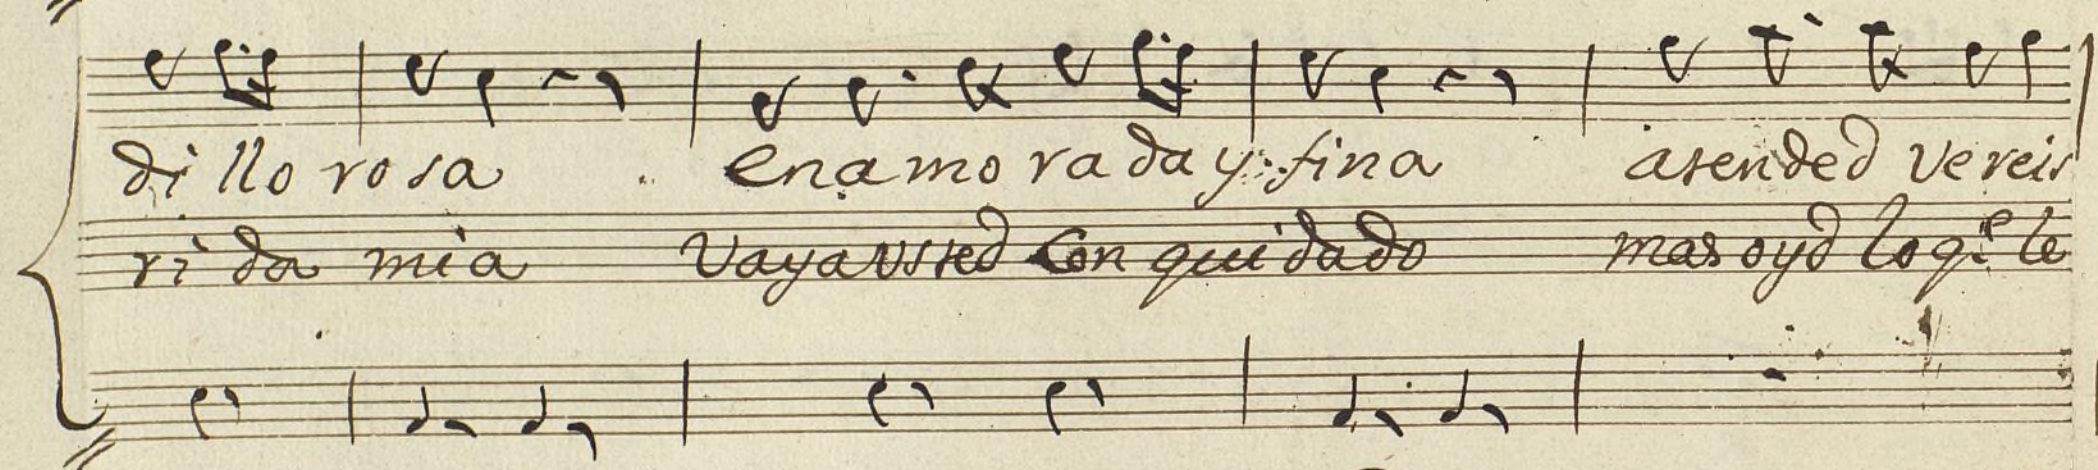 di llo rosa enamorada y fina atended vereis
rida mia vaya usted Con quidado mas oyd lo qe. le